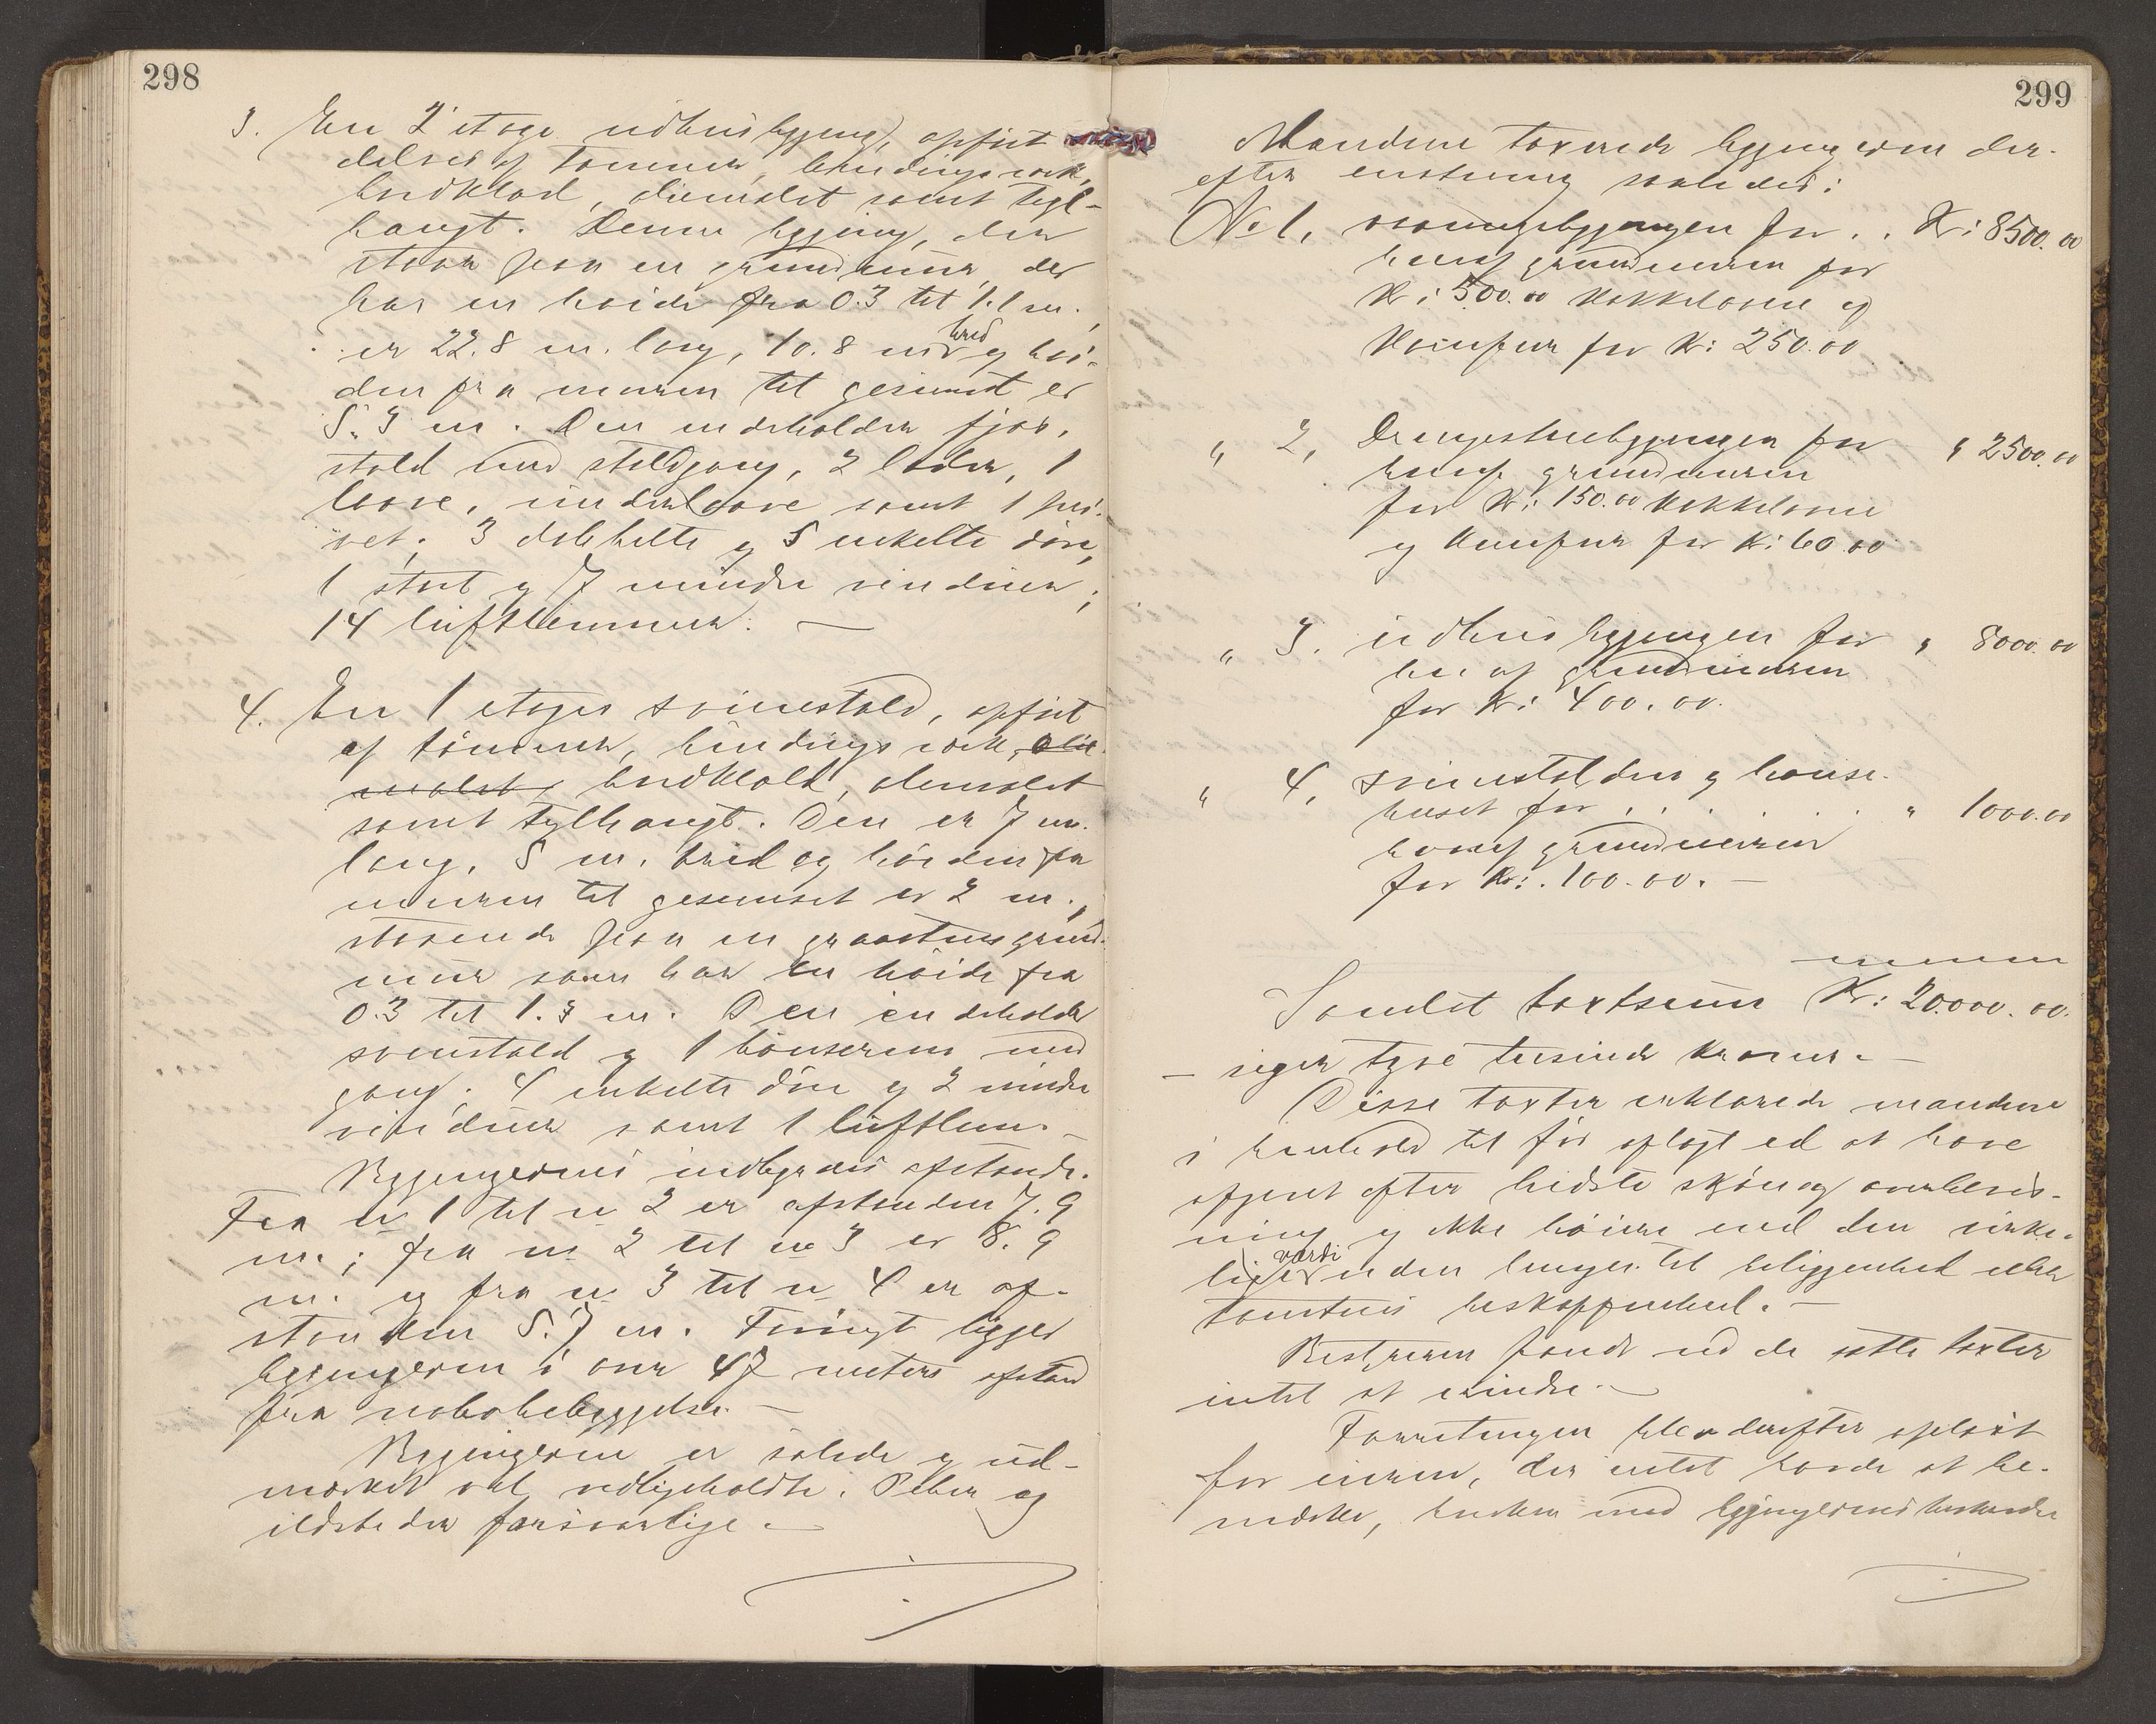 298
3. En 2 etage udhusbygning, opført
delvis af tømmer, bindingsverk,
bordklæd, oliemalet samt tegl-
hængt. Denne bygning, der
staar paa en grundmur, der
har en høide fra 0.3 til 1.1 m.,
er 22.8 m. lang, 10.8 m. bred og høi-
den fra muren til gesimset er
5.3 m. Den indeholder fjøs,
stald med staldgang, 2 lader, 1
laave, underlaave samt 1 pri-
vet; 3 dobbelte og 5 enkelte døre,
1 stort og 7 mindre vinduer;
14 luftlemmer. —
4. En 1 etages svinestald, opført
af tømmer, bindingsverk, olie-
malet, bordklædt, oliemalet
samt teglhængt. Den er 7 m.
lang, 5 m. bred og høiden fra
muren til gesimset er 2 m.,
staaende paa en graastensgrund-
mur som har en høide fra
0.3 til 1.3 m. Den indeholder
svinestald og 1 hønserum med
gang; 4 enkelte døre og 2 mindre
vinduer samt 1 luftlem. —
Bygningernes indbyrdes afstande.
Fra no 1 til no 2 er afstanden 7.9
m.; fra no 2 til no 3 er 8.9
m. og fra no 3 til no 4 er af-
standen 5.7 m. Forøvrigt ligger
bygningerne i over 47 meters afstand
fra nabobebyggelse. —
Bygningerne er solide og ud-
mærket vel vedligeholdte. Piber og
ildsteder forsvarlige. —
299
Mændene taxerede bygningerne der-
efter enstemmig saaledes:
No 1, vaaningsbygningen for . . Kr: 8500.00
heraf grundmuren for
Kr: 500.00 Kakkelovne og
Komfur for Kr: 250.00
" 2, Drengestuebygningen for " 2500.00
heraf grundmuren
for Kr: 150.00 Kakkelovne
og Komfur for Kr: 60.00
" 3. udhusbygningen for " 8000.00
heraf grundmuren
for Kr: 400.00.
" 4, svinestalden og hønse-
huset for . . . . . " 1000.00
heraf grundmuren
for Kr: 100.00. —
Samlet taxtsum Kr: 20.000.00.
— siger tyve tusinde kroner. —
Disse taxter erklærede mændene
i henhold til før aflagt ed at have
afgivet efter bedste skjøn og overbevis-
ning og ikke høiere end den virke-
lige værdi uden hensyn til beliggenhed eller
tomtens beskaffenhed. —
Bestyreren fandt ved de satte taxter
intet at erindre. —
Forretningen blev derefter oplæst
for eieren, der intet havde at be-
mærke, hverken med bygningernes beskrivelse